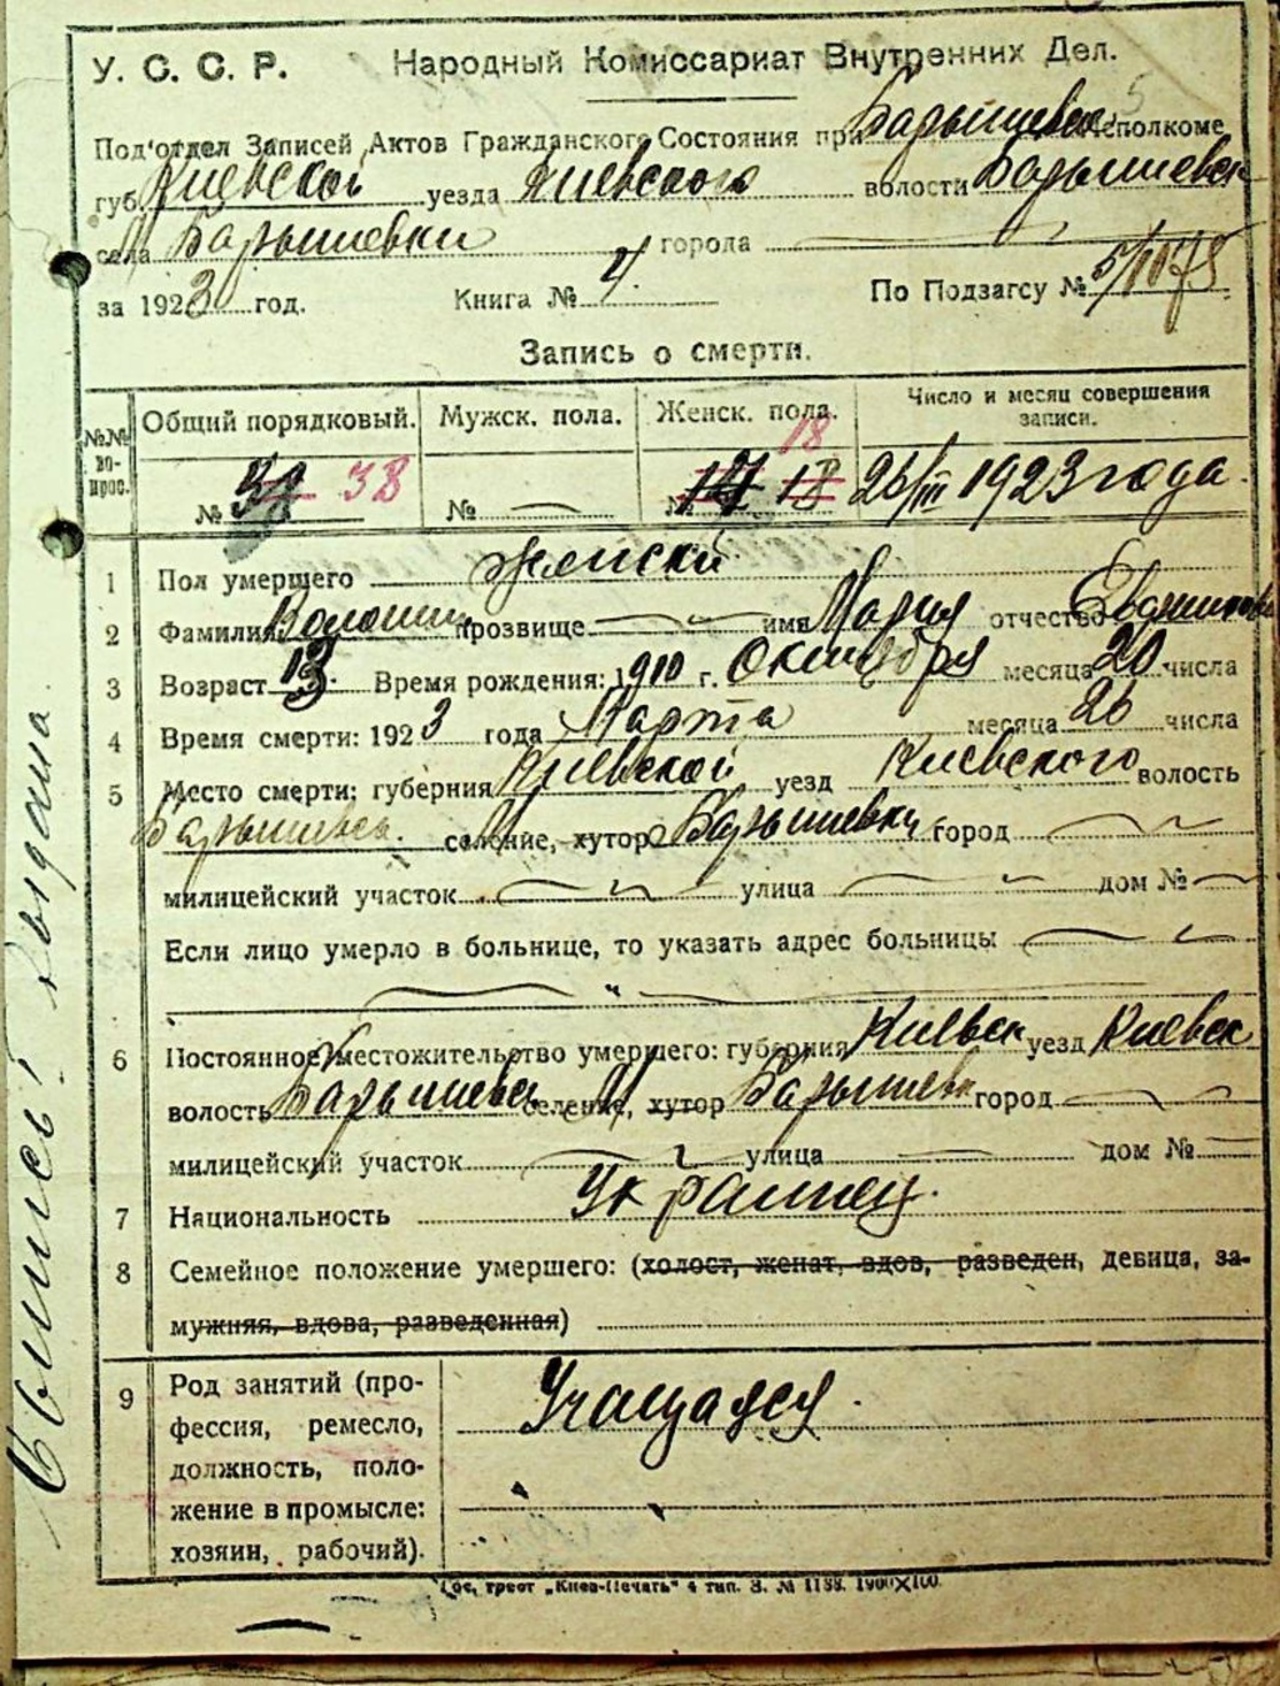 У. С. С. Р. Народный Комиссариат Внутренних Дел.
Под'отдел Записей Актов Гражданского Состояния при Барышевск. Исполкоме
губ. Киевской уезда Киевского волости Барышевск
села М Барышевки города
за 1923 год. Книга № 4. По Подзагсу №
Запись о смерти.
№№ вопрос. Общий порядковый. Мужск. пола. Женск. пола. Число и месяц совершения записи.
18
№ 38 № № 17 18 26/III 1923 года.
1 Пол умершего женски
2 Фамилия прозвище имя Мария отчество
3 Возраст 13. Время рождения: 1910 г. Октября месяца 20 числа
4 Время смерти: 1923 года Марта месяца 26 числа
5 Место смерти: губерния Киевской уезд Киевского волость
Барышевск. М селение, хутор Барышевки город
милицейский участок улица дом №
Если лицо умерло в больнице, то указать адрес больницы
6 Постоянное местожительство умершего: губерния Киевск уезд Киевск
волость Барышевск М селение, хутор Барышевк город
милицейский участок улица дом №
7 Национальность Украинец.
8 Семейное положение умершего: (холост, женат, вдов, разведен, девица, за-
мужняя, вдова, разведенная)
9 Род занятий (про- Учащаяся.
фессия, ремесло,
должность, поло-
жение в промысле:
хозяин, рабочий).
Гос. трест „Киев-Печать" 4 тип. З. № 1188. 1900×100.
Выпись выдана.